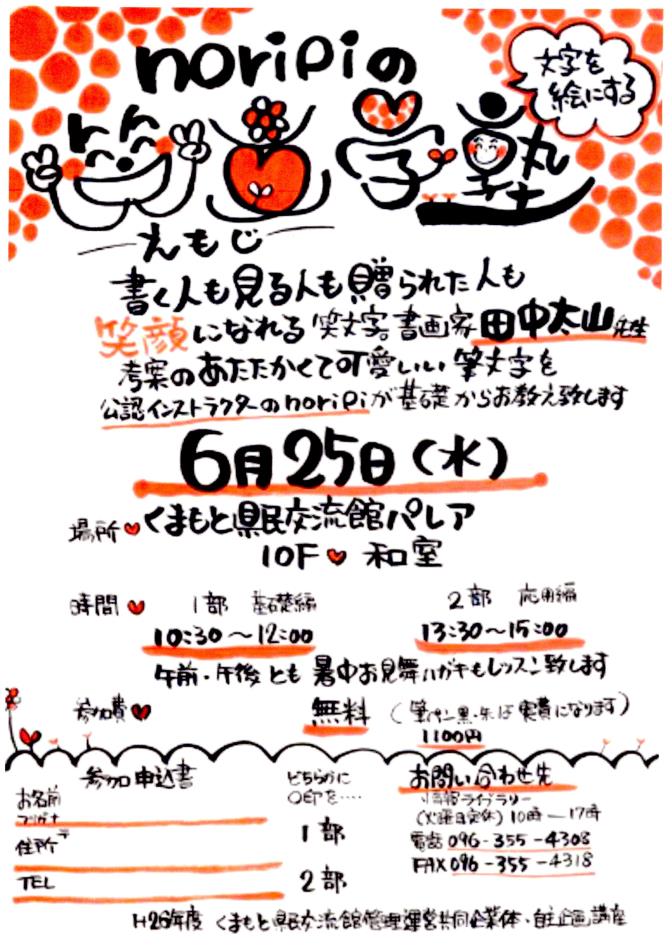 noripiの
文字を
絵にする
笑文字塾
えもじ
書く人も見る人も贈られた人も
笑顔になれる 笑文字。書画家 田中太山先生
考案のあたたかくて可愛いい筆文字を
公認インストラクターのnoripiが基礎からお教え致します
6月25日(水)
場所 くまもと県民交流館パレア
10F 和室
時間 1部 基礎編 2部 応用編
10:30〜12:00 13:30〜15:00
午前・午後とも 暑中お見舞ハガキもレッスン致します
参加費 無料 (筆ペン黒・朱は実費になります)
1100円
参加申込書
お名前
フリガナ
住所〒
TEL
どちらかに
○印を‥‥
1部
2部
お問い合わせ先
情報ライブラリー
(火曜日定休) 10時―17時
電話 096-355-4308
FAX 096-355-4318
H26年度 くまもと県民交流館管理運営共同企業体・自主企画講座